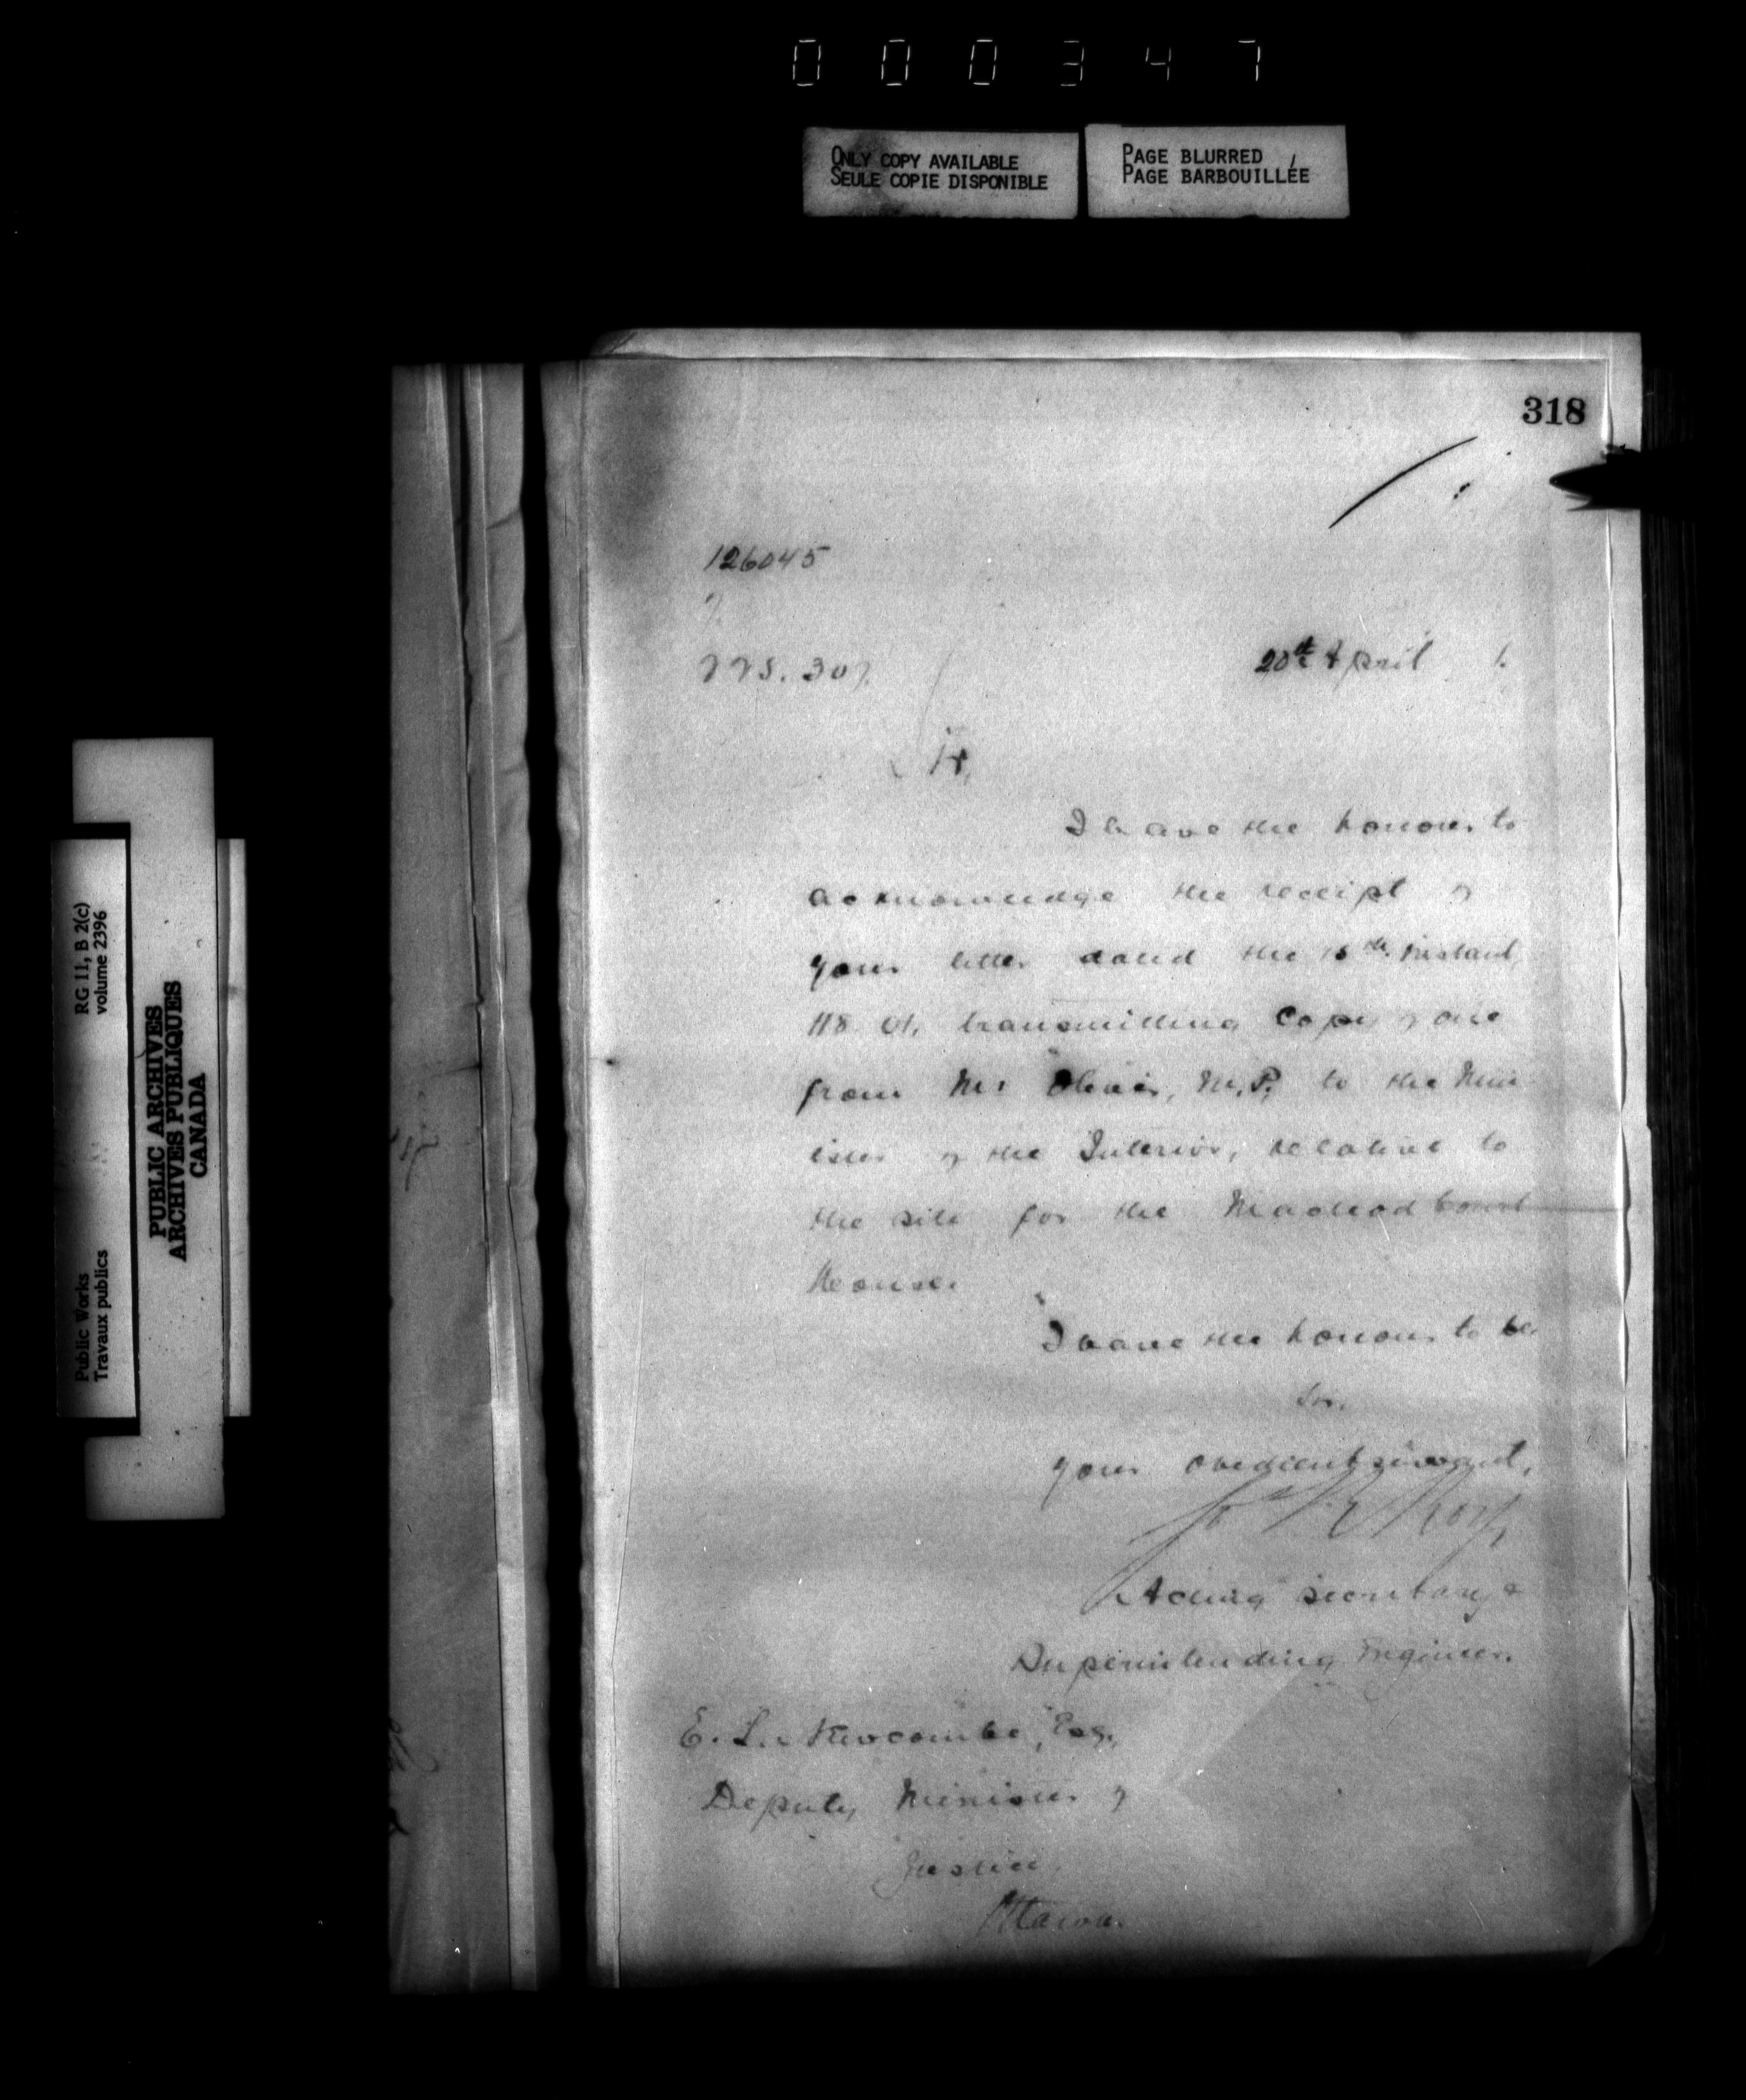 000347
ONLY COPY AVAILABLE
SEULE COPIE DISPONIBLE
PAGE BLURRED
PAGE BARBOUILLÉE
318
126045
20th April 1.
Sir,
I have the honour to
acknowledge the receipt of
your letter dated the 15th instant,
118.01, transmitting copy of one
from Mr Oliver, M.P. to the Min
ister of the Interior, relative to
the site for the Macleod Court
House.
I have the honour to be
Sir,
your obedient servant,
Acting Secretary &
Superintending Engineer.
E. L. Newcombe, Esq.,
Deputy Minister of
Justice,
Ottawa.
RG 11, B 2(c)
volume 2396
Public Works
Travaux publics
PUBLIC ARCHIVES
ARCHIVES PUBLIQUES
CANADA